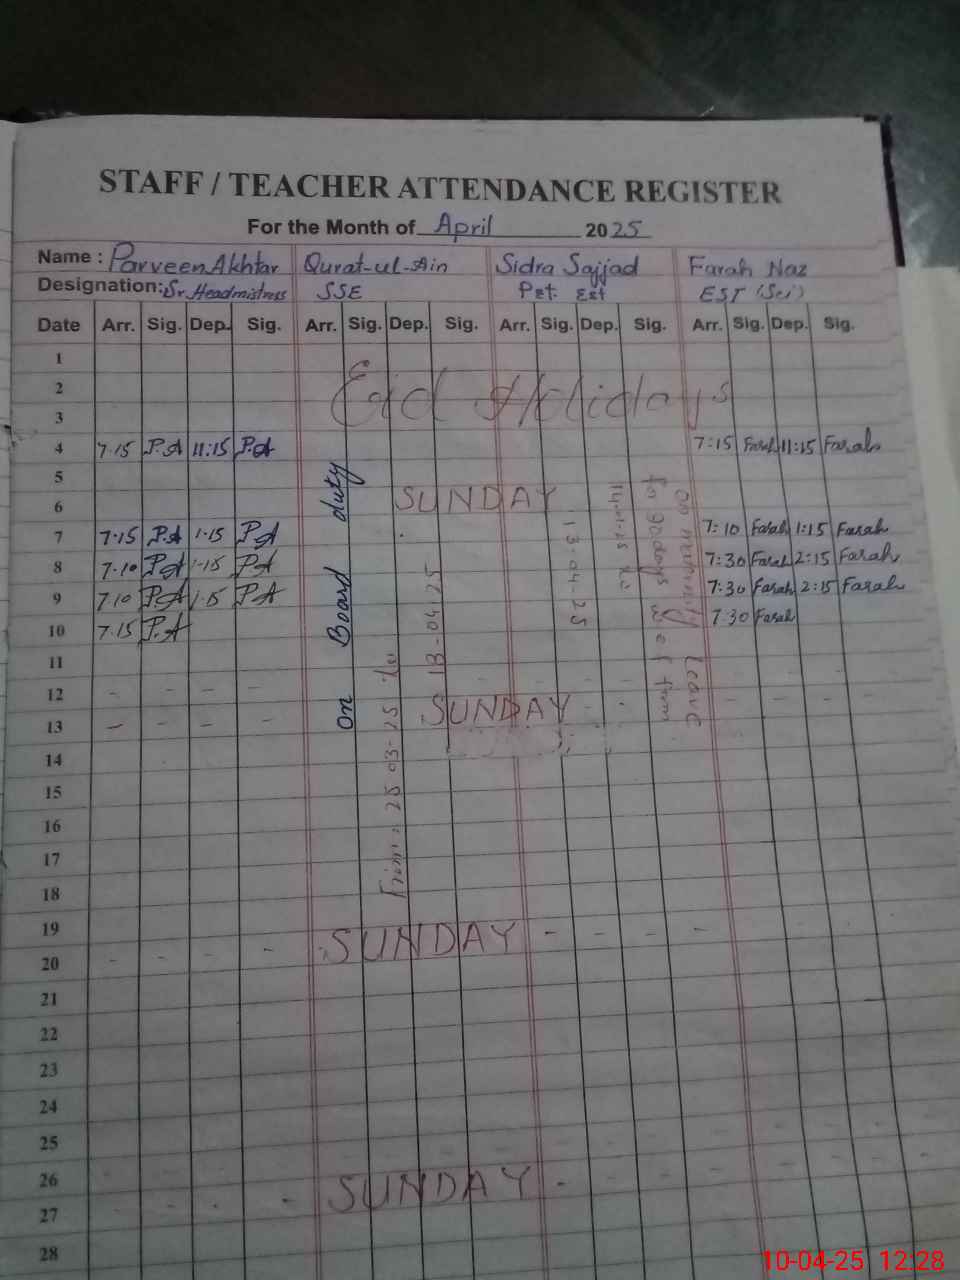 STAFF / TEACHER ATTENDANCE REGISTER
For the Month of April 2025
Name : Parveen Akhtar Qurat-ul-Ain Sidra Sajjad Farah Naz
Designation: Sr. Headmistress SSE Pet. Est EST (Sci)
Date Arr. Sig. Dep. Sig. Arr. Sig. Dep. Sig. Arr. Sig. Dep. Sig. Arr. Sig. Dep. Sig.
1
2 Eid Holidays
3
4 7.15 P.A 11:15 P.A 7:15 Farah 11:15 Farah
5
6 SUNDAY
7 7.15 P.A 1.15 P.A 7:10 Farah 1:15 Farah
8 7.10 P.A 1.15 P.A 7:30 Farah 2:15 Farah
9 7.10 P.A 1.15 P.A 7:30 Farah 2:15 Farah
10 7.15 P.A 7:30 Farah
11
12
13 SUNDAY
14
15
16
17
18
19
20 SUNDAY
21
22
23
24
25
26
27 SUNDAY
28
On Board duty
From : 25-03-25 to
18-04-25
13-04-25
14-1-25 to
for 90 days w.e.f from
On maternity leave
10-04-25 12:28